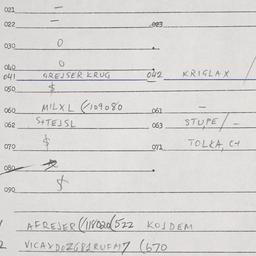 021 –
022 – 023
030 0
040 0
041 GREJSER KRUG 042 KRIGLAX /
050 $
060 MILXL (/109080 061 –
062 S+TEJSL 063 STUPE / –
070 $ 072 TOLKA, CH
080
090
AFREJER (/118020(522 KOJDEM
2 (670